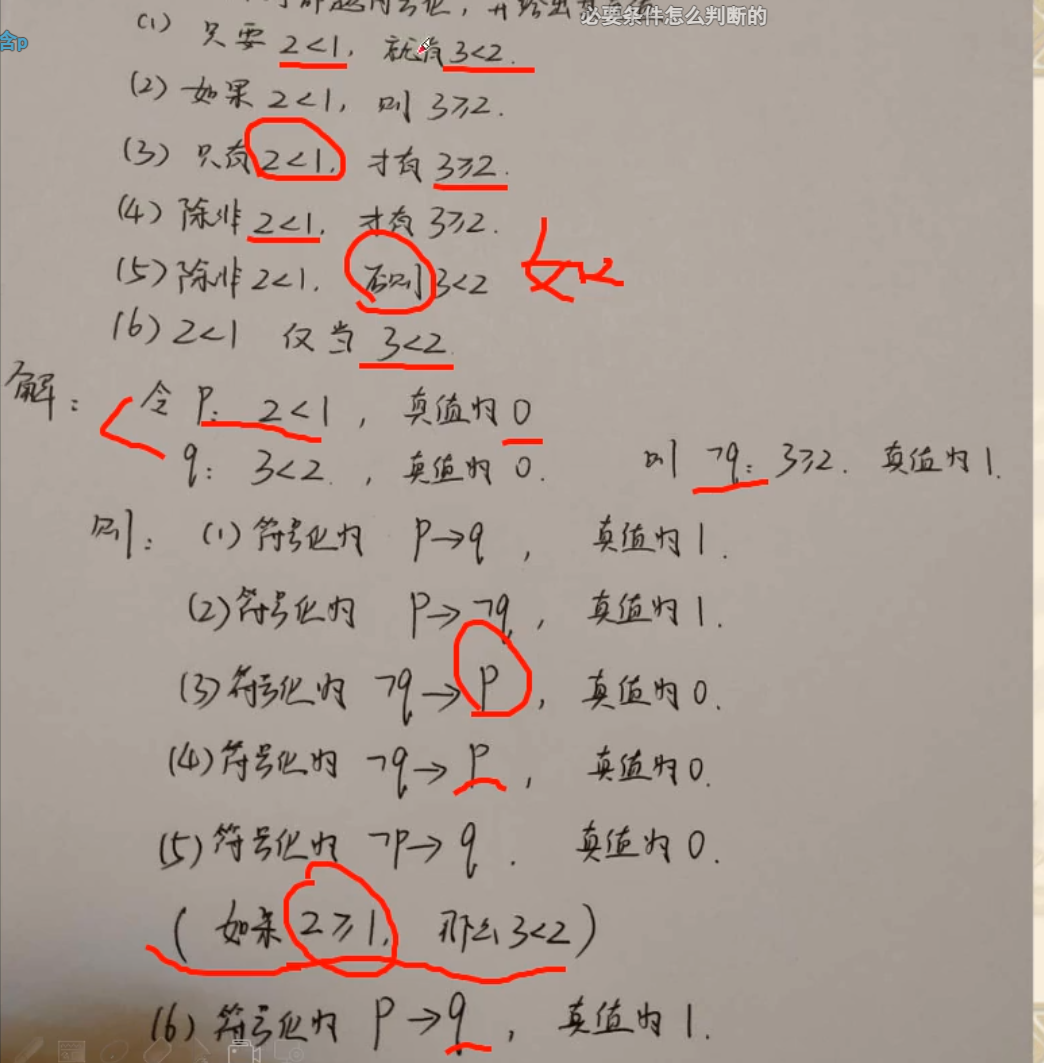 必要条件怎么判断的
含p
(1) 只要 2<1, 就有 3<2.
(2) 如果 2<1, 则 3≥2.
(3) 只有 2<1, 才有 3≥2.
(4) 除非 2<1, 才有 3≥2.
(5) 除非 2<1, 否则 3<2
(6) 2<1 仅当 3<2.
解: 令 P: 2<1, 真值为 0
q: 3<2, 真值为 0. 则 ¬q: 3≥2. 真值为 1.
则: (1) 符号化为 P→q, 真值为 1.
(2) 符号化为 P→¬q, 真值为 1.
(3) 符号化为 ¬q→P, 真值为 0.
(4) 符号化为 ¬q→P, 真值为 0.
(5) 符号化为 ¬P→q. 真值为 0.
(如果 2≥1, 那么 3<2)
(6) 符号化为 P→q, 真值为 1.